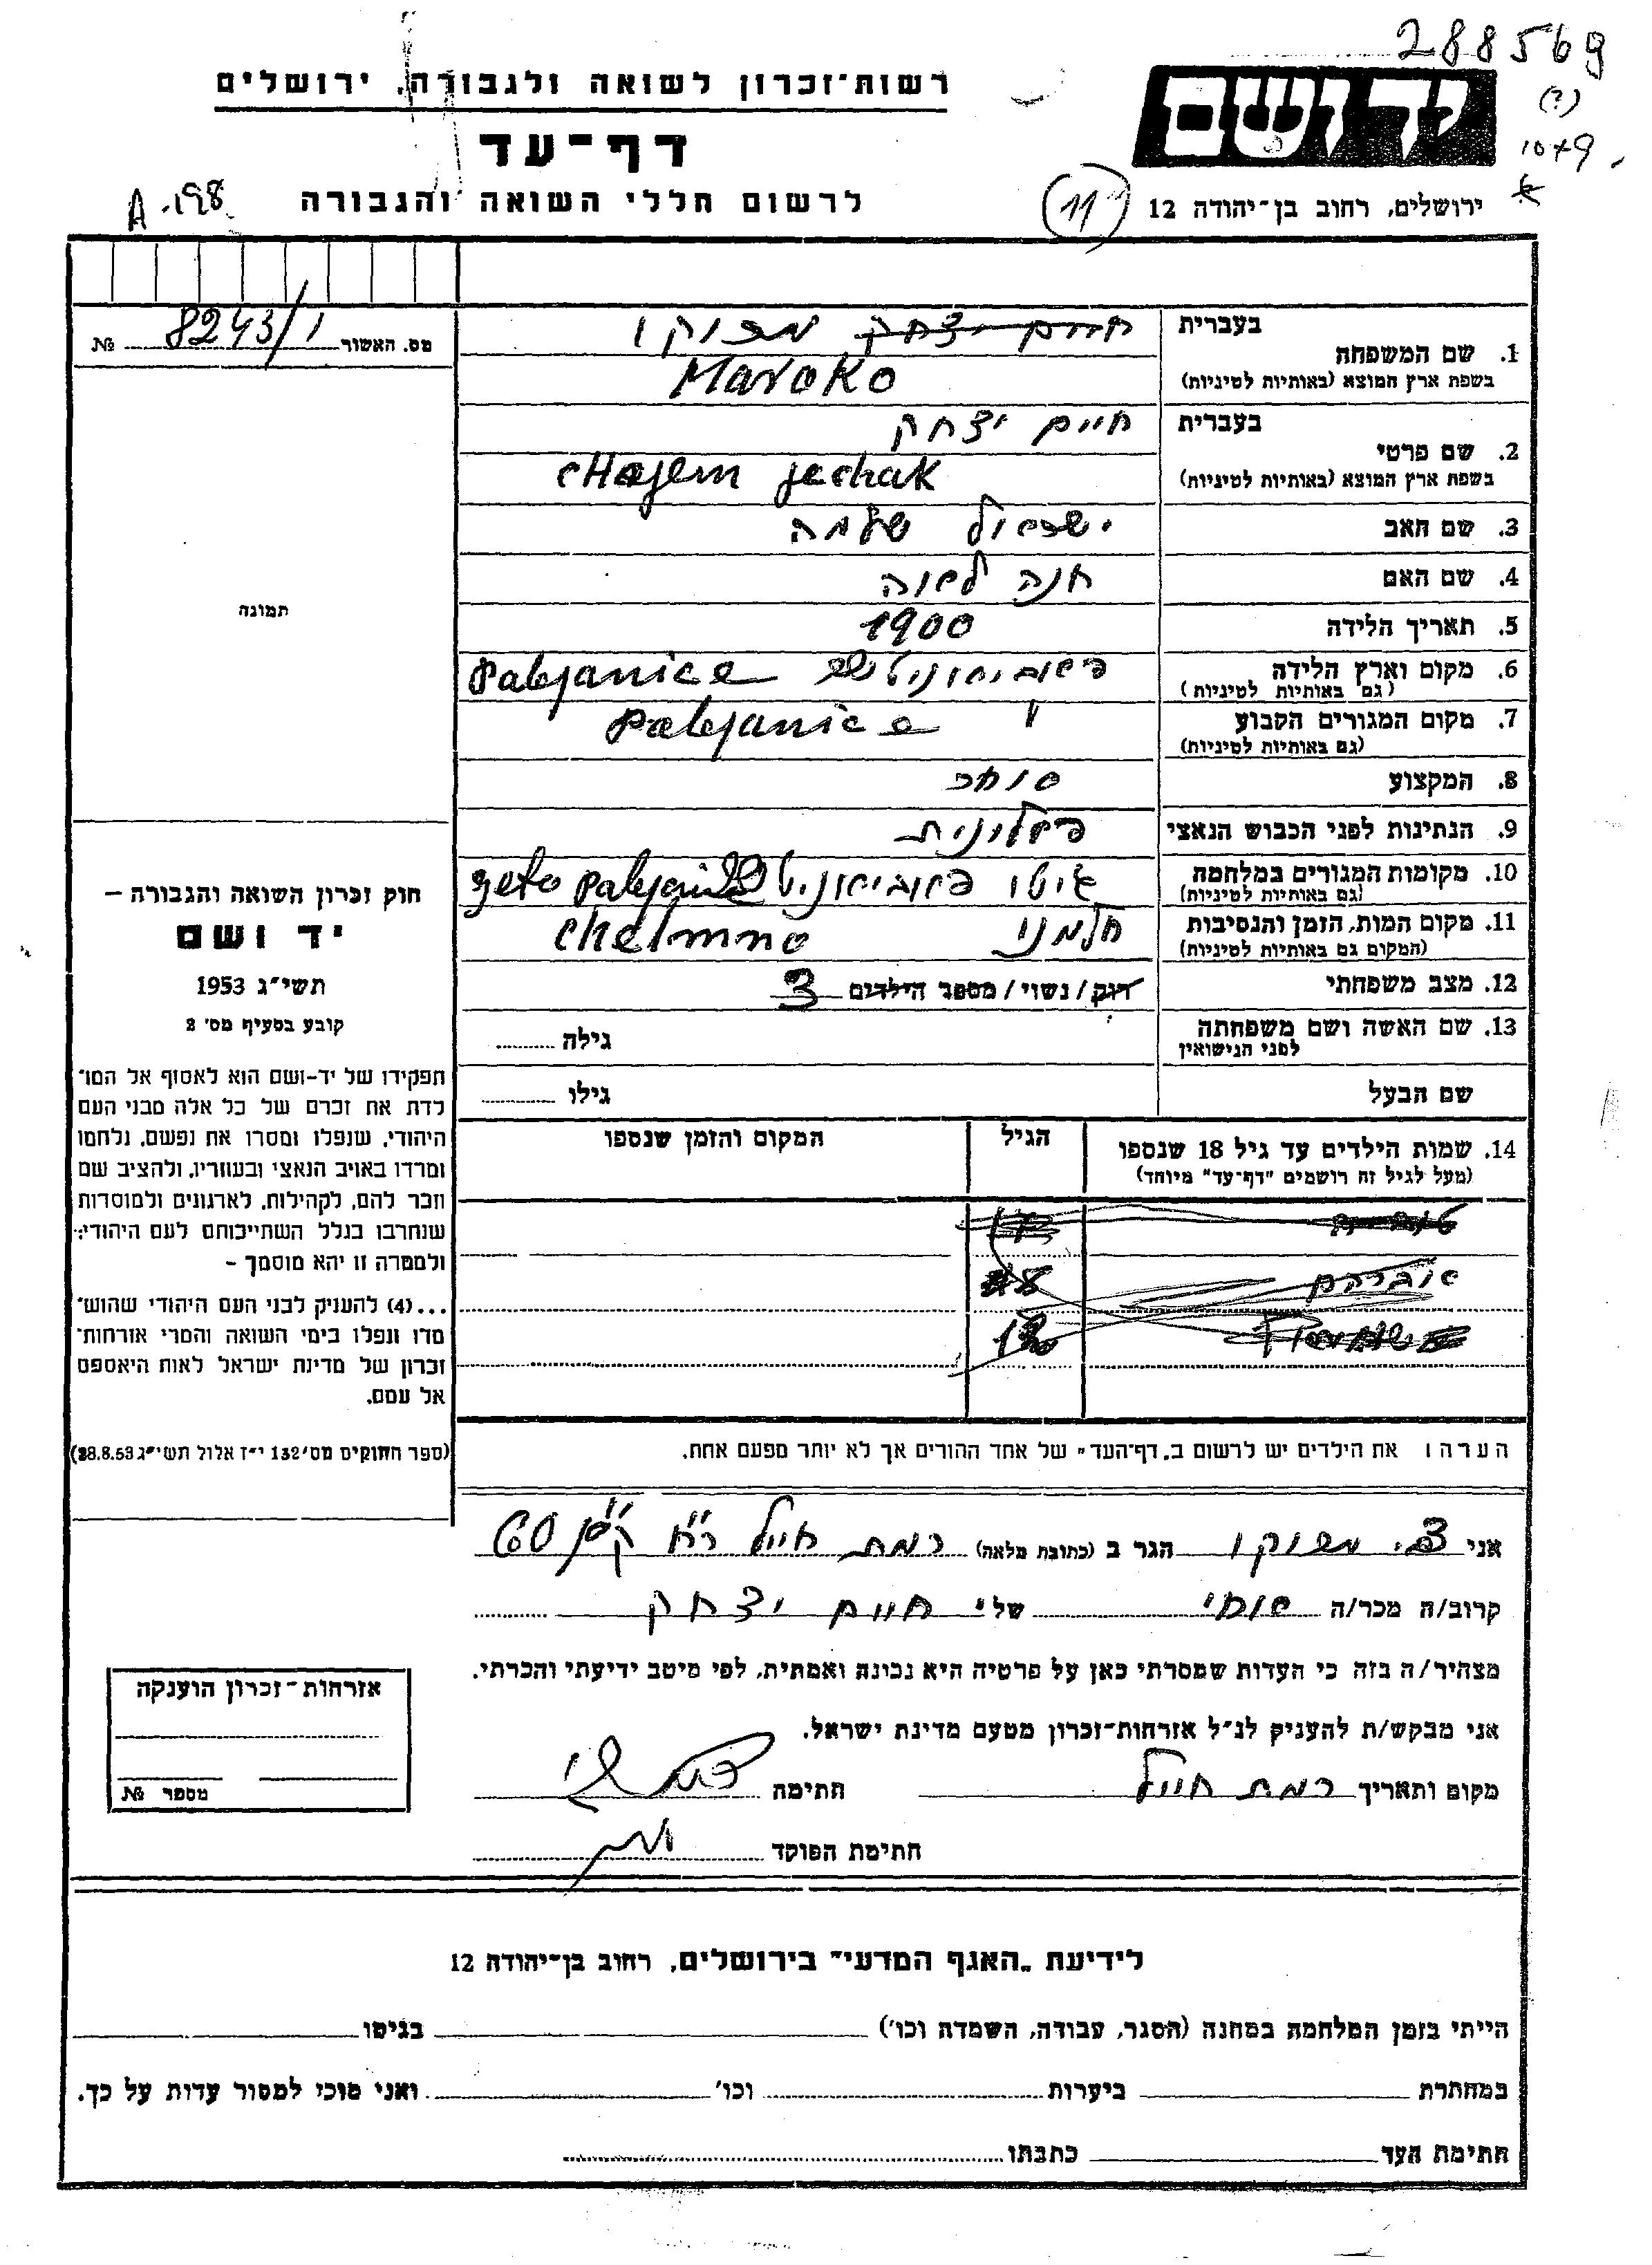 288569
(?)
1079
רשות־זכרון לשואה ולגבורה, ירושלים
ידושם
דף־עד
לרשום חללי השואה והגבורה
A-198
(11)
ירושלים, רחוב בן־יהודה 12
מס. האשור 8243/1 №
תמונה
חוק זכרון השואה והגבורה –
יד ושם
תשי״ג 1953
קובע בסעיף מס׳ 2
תפקידו של יד-ושם הוא לאסוף אל המו־
לדת את זכרם של כל אלה מבני העם
היהודי, שנפלו ומסרו את נפשם, נלחמו
ומרדו באויב הנאצי ובעוזריו, ולהציב שם
וזכר להם, לקהילות, לארגונים ולמוסדות
שנחרבו בגלל השתייכותם לעם היהודי;
ולמטרה זו יהא מוסמך –
...(4) להעניק לבני העם היהודי שהוש־
מדו ונפלו בימי השואה והמרי אזרחות־
זכרון של מדינת ישראל לאות היאספם
אל עמם.
(ספר החוקים מס׳ 132 י״ז אלול תשי״ג 28.8.53)
בעברית חיים יצחק מרוקו
1. שם המשפחה
בשפת ארץ המוצא (באותיות לטיניות) Maroko
בעברית חיים יצחק
2. שם פרטי
בשפת ארץ המוצא (באותיות לטיניות) CHajem jechak
3. שם האב ישראל שלמה
4. שם האם חנה לאה
5. תאריך הלידה 1900
6. מקום וארץ הלידה פאביאניצה Pabjanice
(גם באותיות לטיניות)
7. מקום המגורים הקבוע " Pabjanice
(גם באותיות לטיניות)
8. המקצוע סוחר
9. הנתינות לפני הכבוש הנאצי פולנית
10. מקומות המגורים במלחמה גיטו פאביאניצה geto Pabjanice
(גם באותיות לטיניות)
11. מקום המות, הזמן והנסיבות חלמנו Chelmno
(המקום גם באותיות לטיניות)
12. מצב משפחתי רוק/נשוי/מספר הילדים 3
13. שם האשה ושם משפחתה גילה
לפני הנישואין
שם הבעל גילו
14. שמות הילדים עד גיל 18 שנספו הגיל המקום והזמן שנספו
(מעל לגיל זה רושמים "דף-עד" מיוחד)
אברהם
הערה: את הילדים יש לרשום ב„דף־העד״ של אחד ההורים אך לא יותר מפעם אחת.
אני מרוקו הגר ב (כתובת מלאה) רמת חייל רח׳ 60
קרוב/ה מכר/ה אחי שלי חיים יצחק
מצהיר/ה בזה כי העדות שמסרתי כאן על פרטיה היא נכונה ואמתית, לפי מיטב ידיעתי והכרתי.
אני מבקש/ת להעניק לנ״ל אזרחות־זכרון מטעם מדינת ישראל.
מקום ותאריך רמת חייל חתימה
חתימת הפוקד
אזרחות־זכרון הוענקה
מספר №
לידיעת „האגף המדעי״ בירושלים, רחוב בן־יהודה 12
הייתי בזמן המלחמה במחנה (הסגר, עבודה, השמדה וכו׳) בגיטו
במחתרת ביערות וכו׳ ואני מוכן למסור עדות על כך.
חתימת העד כתבתו